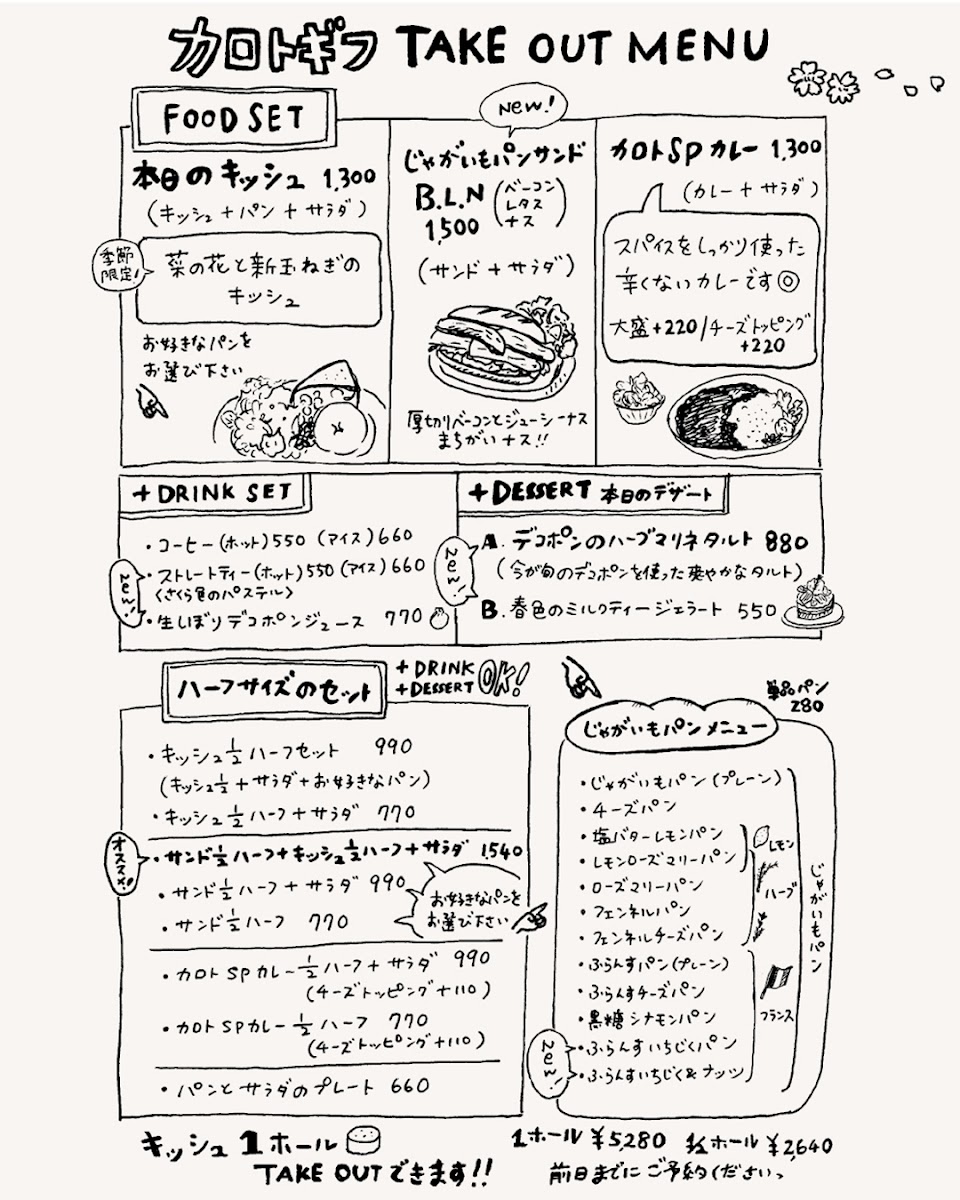 カロトギフ TAKE OUT MENU
FOOD SET
本日のキッシュ 1,300
(キッシュ+パン+サラダ)
季節
限定!
菜の花と新玉ねぎの
キッシュ
お好きなパンを
お選び下さい
New!
じゃがいもパンサンド
B.L.N (ベーコン
レタス
ナス)
1,500
(サンド+サラダ)
厚切りベーコンとジューシーナス
まちがいナス!!
カロトSPカレー 1,300
(カレー+サラダ)
スパイスをしっかり使った
辛くないカレーです◎
大盛+220/チーズトッピング
+220
+DRINK SET
・コーヒー(ホット)550 (アイス)660
New!
・ストレートティー(ホット)550(アイス)660
〈さくら色のパステル〉
・生しぼりデコポンジュース 770
+DESSERT 本日のデザート
New!
A. デコポンのハーブマリネタルト 880
(今が旬のデコポンを使った爽やかなタルト)
B. 春色のミルクティージェラート 550
ハーフサイズのセット
+DRINK
+DESSERT OK!
・キッシュ1/2ハーフセット 990
(キッシュ1/2+サラダ+お好きなパン)
・キッシュ1/2ハーフ+サラダ 770
オススメ!
・サンド1/2ハーフ+キッシュ1/2ハーフ+サラダ 1,540
・サンド1/2ハーフ+サラダ 990
・サンド1/2ハーフ 770
お好きなパンを
お選び下さい
・カロトSPカレー1/2ハーフ+サラダ 990
(チーズトッピング+110)
・カロトSPカレー1/2ハーフ 770
(チーズトッピング+110)
・パンとサラダのプレート 660
単品パン
280
じゃがいもパンメニュー
・じゃがいもパン(プレーン)
・チーズパン
・塩バターレモンパン
・レモンローズマリーパン
・ローズマリーパン
・フェンネルパン
・フェンネルチーズパン
・ふらんすパン(プレーン)
・ふらんすチーズパン
・黒糖シナモンパン
New!
・ふらんすいちじくパン
・ふらんすいちじく&ナッツ
レモン
ハーブ
フランス
じゃがいもパン
キッシュ1ホール
TAKE OUTできます!!
1ホール ¥5,280 1/2ホール ¥2,640
前日までにご予約ください。